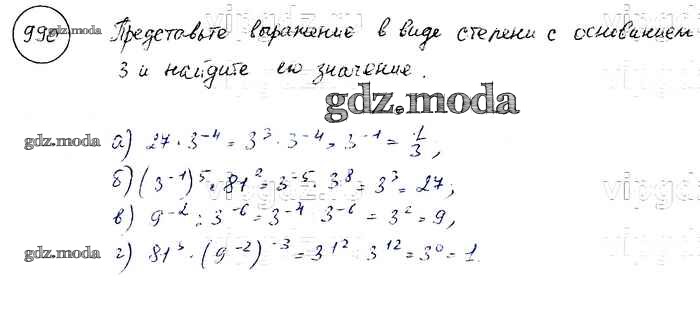 990 Представьте выражение в виде степени с основанием
3 и найдите его значение.
gdz.moda
gdz.moda
а) 27 · 3⁻⁴ = 3³ · 3⁻⁴ = 3⁻¹ = 1/3,
б) (3⁻¹)⁵ · 81² = 3⁻⁵ · 3⁸ = 3³ = 27;
gdz.moda
в) 9⁻² : 3⁻⁶ = 3⁻⁴ 3⁻⁶ = 3² = 9,
gdz.moda
г) 81³ · (9⁻²)⁻³ = 3¹² 3¹² = 3⁰ = 1.